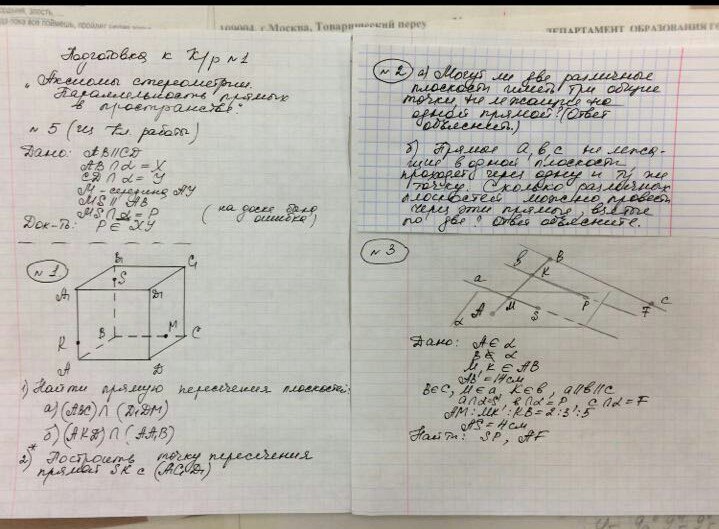 109004, г.Москва, Товарищеский переу
ДЕПАРТАМЕНТ ОБРАЗОВАНИЯ Г
Подготовка к К/р №1
"Аксиомы стереометрии.
Параллельность прямых
в пространстве"
№ 5 (из кл. работы)
Дано: AB∥CD
AB ∩ α = X
CD ∩ α = Y
M - середина AY
MS ∥ AB
MS ∩ α = P
(на доске была
ошибка)
Док-ть: P ∈ XY
№1
B₁ C₁
S
A₁ D₁
K B M C
A D
1) Найти прямую пересечения плоскостей:
а) (ABC) ∩ (D₁DM)
б) (AKD) ∩ (AA₁B)
2)* Построить точку пересечения
прямой SK с (A₁C₁D₁)
№2 а) Могут ли две различные
плоскости иметь три общие
точки, не лежащие на
одной прямой? (Ответ
объясните.)
б) Прямые a, b, c не лежа-
щие в одной плоскости
проходят через одну и ту же
точку. Сколько различных
плоскостей можно провести
через эти прямые, взятые
по две? Ответ объясните.
№3
b B
a K
A M S P F c
α
Дано: A ∈ α
B ∉ α
M, K ∈ AB
AB = 14 см
B∈c, M∈a, K∈b, a∥b∥c
a∩α=S, b∩α=P, c∩α=F
AM:MK:KB=2:3:5
AS = 4 см
Найти: SP, AF